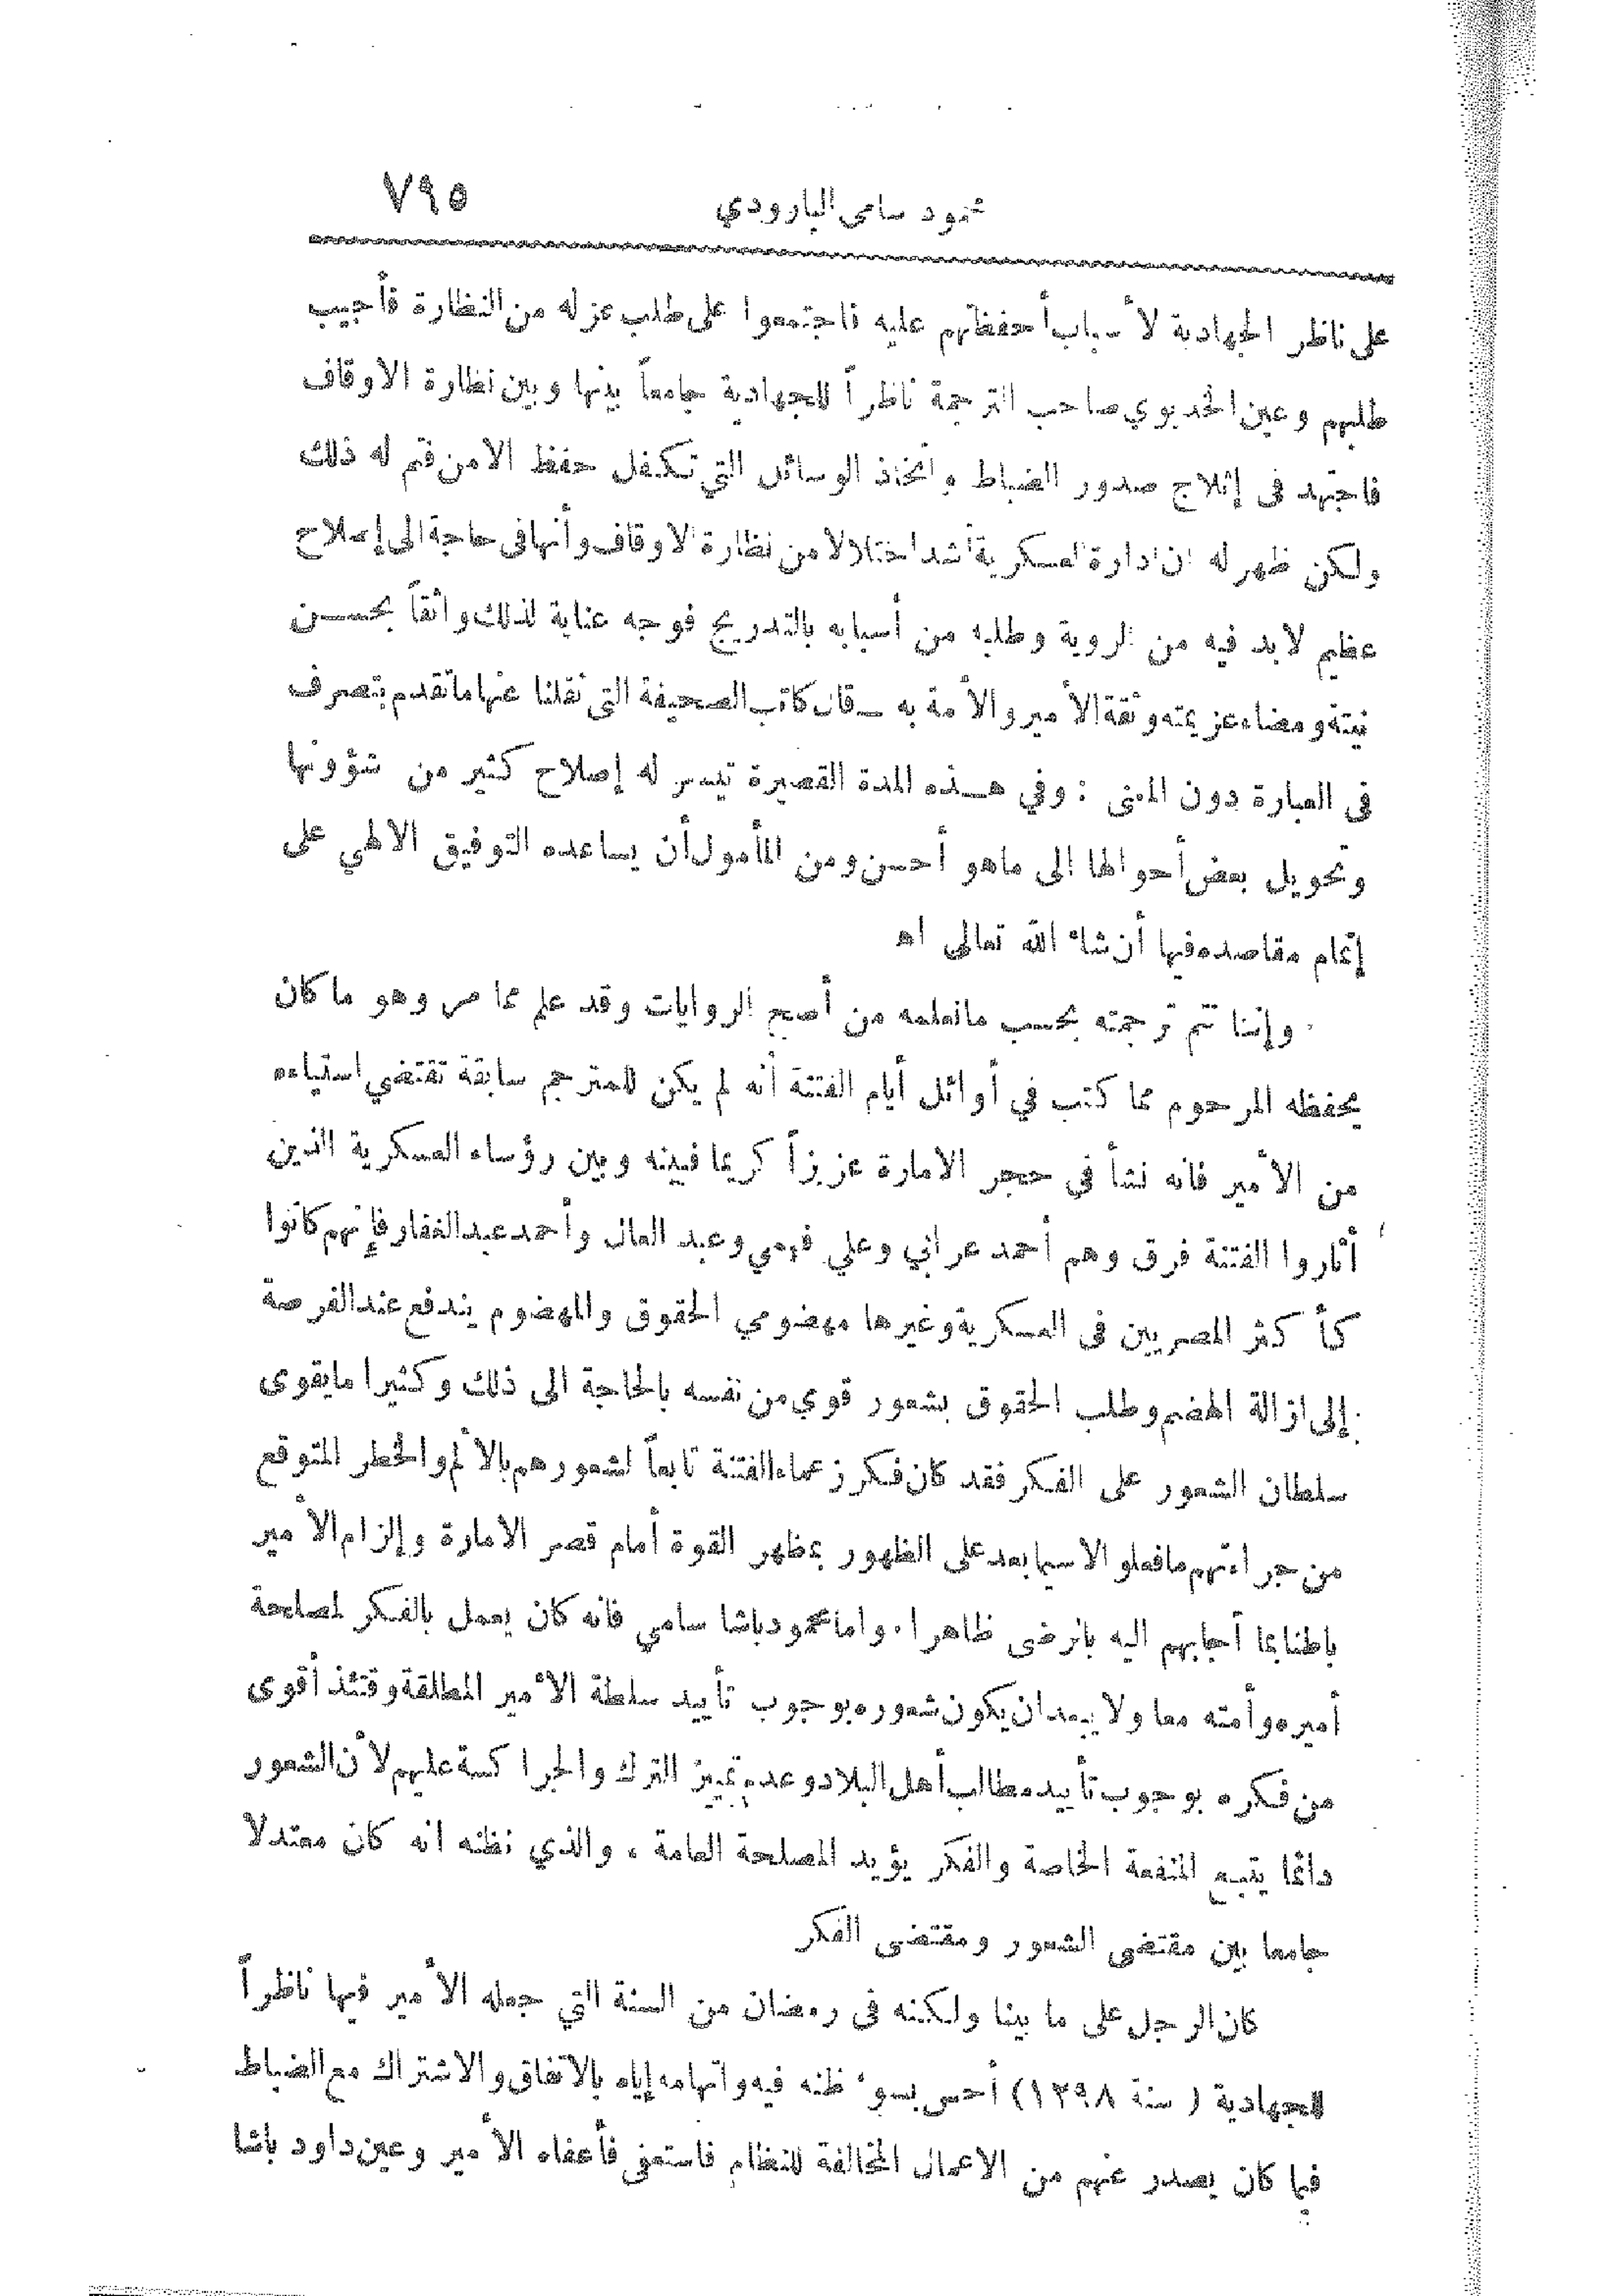 محمود سامى البارودي ٧٩٥
على ناظر الجهادية لأسباب أحفظتهم عليه فاجتمعوا على طلب عزله من النظارة فأجيب
طلبهم وعين الخديوي صاحب الترجمة ناظراً للجهادية جامعاً بينها وبين نظارة الاوقاف
فاجتهد فى إثلاج صدور الضباط واتخاذ الوسائل التي تكفل حفظ الامن فتم له ذلك
ولكن ظهر له ان ادارة العسكرية أشد اختلالا من نظارة الاوقاف وأنها فى حاجة الى إصلاح
عظيم لابد فيه من الروية وطلبه من أسبابه بالتدريج فوجه عناية لذلك واثقاً بحسن
نيته ومضاء عزيمته وثقة الأمير والأمة به ــ قال كاتب الصحيفة التى نقلنا عنها ما تقدم بتصرف
فى العبارة دون المعنى : وفي هذه المدة القصيرة تيسر له إصلاح كثير من شؤونها
وتحويل بعض أحوالها الى ماهو أحسن ومن المأمول أن يساعده التوفيق الالهي على
إتمام مقاصده فيها أن شاء الله تعالى اه
وإننا نتم ترجمته بحسب مانعلمه من أصح الروايات وقد علم مما مر وهو ما كان
يحفظه المرحوم مما كتب في أوائل أيام الفتنة أنه لم يكن للمترجم سابقة تقتضي استياءه
من الأمير فانه نشأ فى حجر الامارة عزيزاً كريما فبينه وبين رؤساء العسكرية الذين
أثاروا الفتنة فرق وهم أحمد عرابي وعلي فهمي وعبد العال وأحمد عبد الغفار فإنهم كانوا
كأكثر المصريين فى العسكرية وغيرها مهضومي الحقوق والمهضوم يندفع عند الفرصة
إلى ازالة الهضم وطلب الحقوق بشعور قوي من نفسه بالحاجة الى ذلك وكثيرا مايقوى
سلطان الشعور على الفكر فقد كان فكر زعماء الفتنة تابعاً لشعورهم بالألم والخطر المتوقع
من جراءتهم مافعلوا لاسيما بعد على الظهور بمظهر القوة أمام قصر الامارة وإلزام الأمير
باطنا بما أجابهم اليه بالرضى ظاهرا. واما محمود باشا سامي فانه كان يعمل بالفكر لمصلحة
أميره وأمته معا ولا يبعد ان يكون شعوره بوجوب تأييد سلطة الأمير المطلقة وقتئذ أقوى
من فكره بوجوب تأييد مطالب أهل البلاد وعدم تمييز الترك والجراكسة عليهم لأن الشعور
دائما يتبع المنفعة الخاصة والفكر يؤيد المصلحة العامة ، والذي نظنه انه كان معتدلا
جامعا بين مقتضى الشعور ومقتضى الفكر
كان الرجل على ما بينا ولكنه فى رمضان من السنة التي جعله الأمير فيها ناظراً
للجهادية ( سنة ١٢٩٨) أحس بسوء ظنه فيه واتهامه إياه بالاتفاق والاشتراك مع الضباط
فيما كان يصدر عنهم من الاعمال المخالفة للنظام فاستعفى فأعفاه الأمير وعين داود باشا